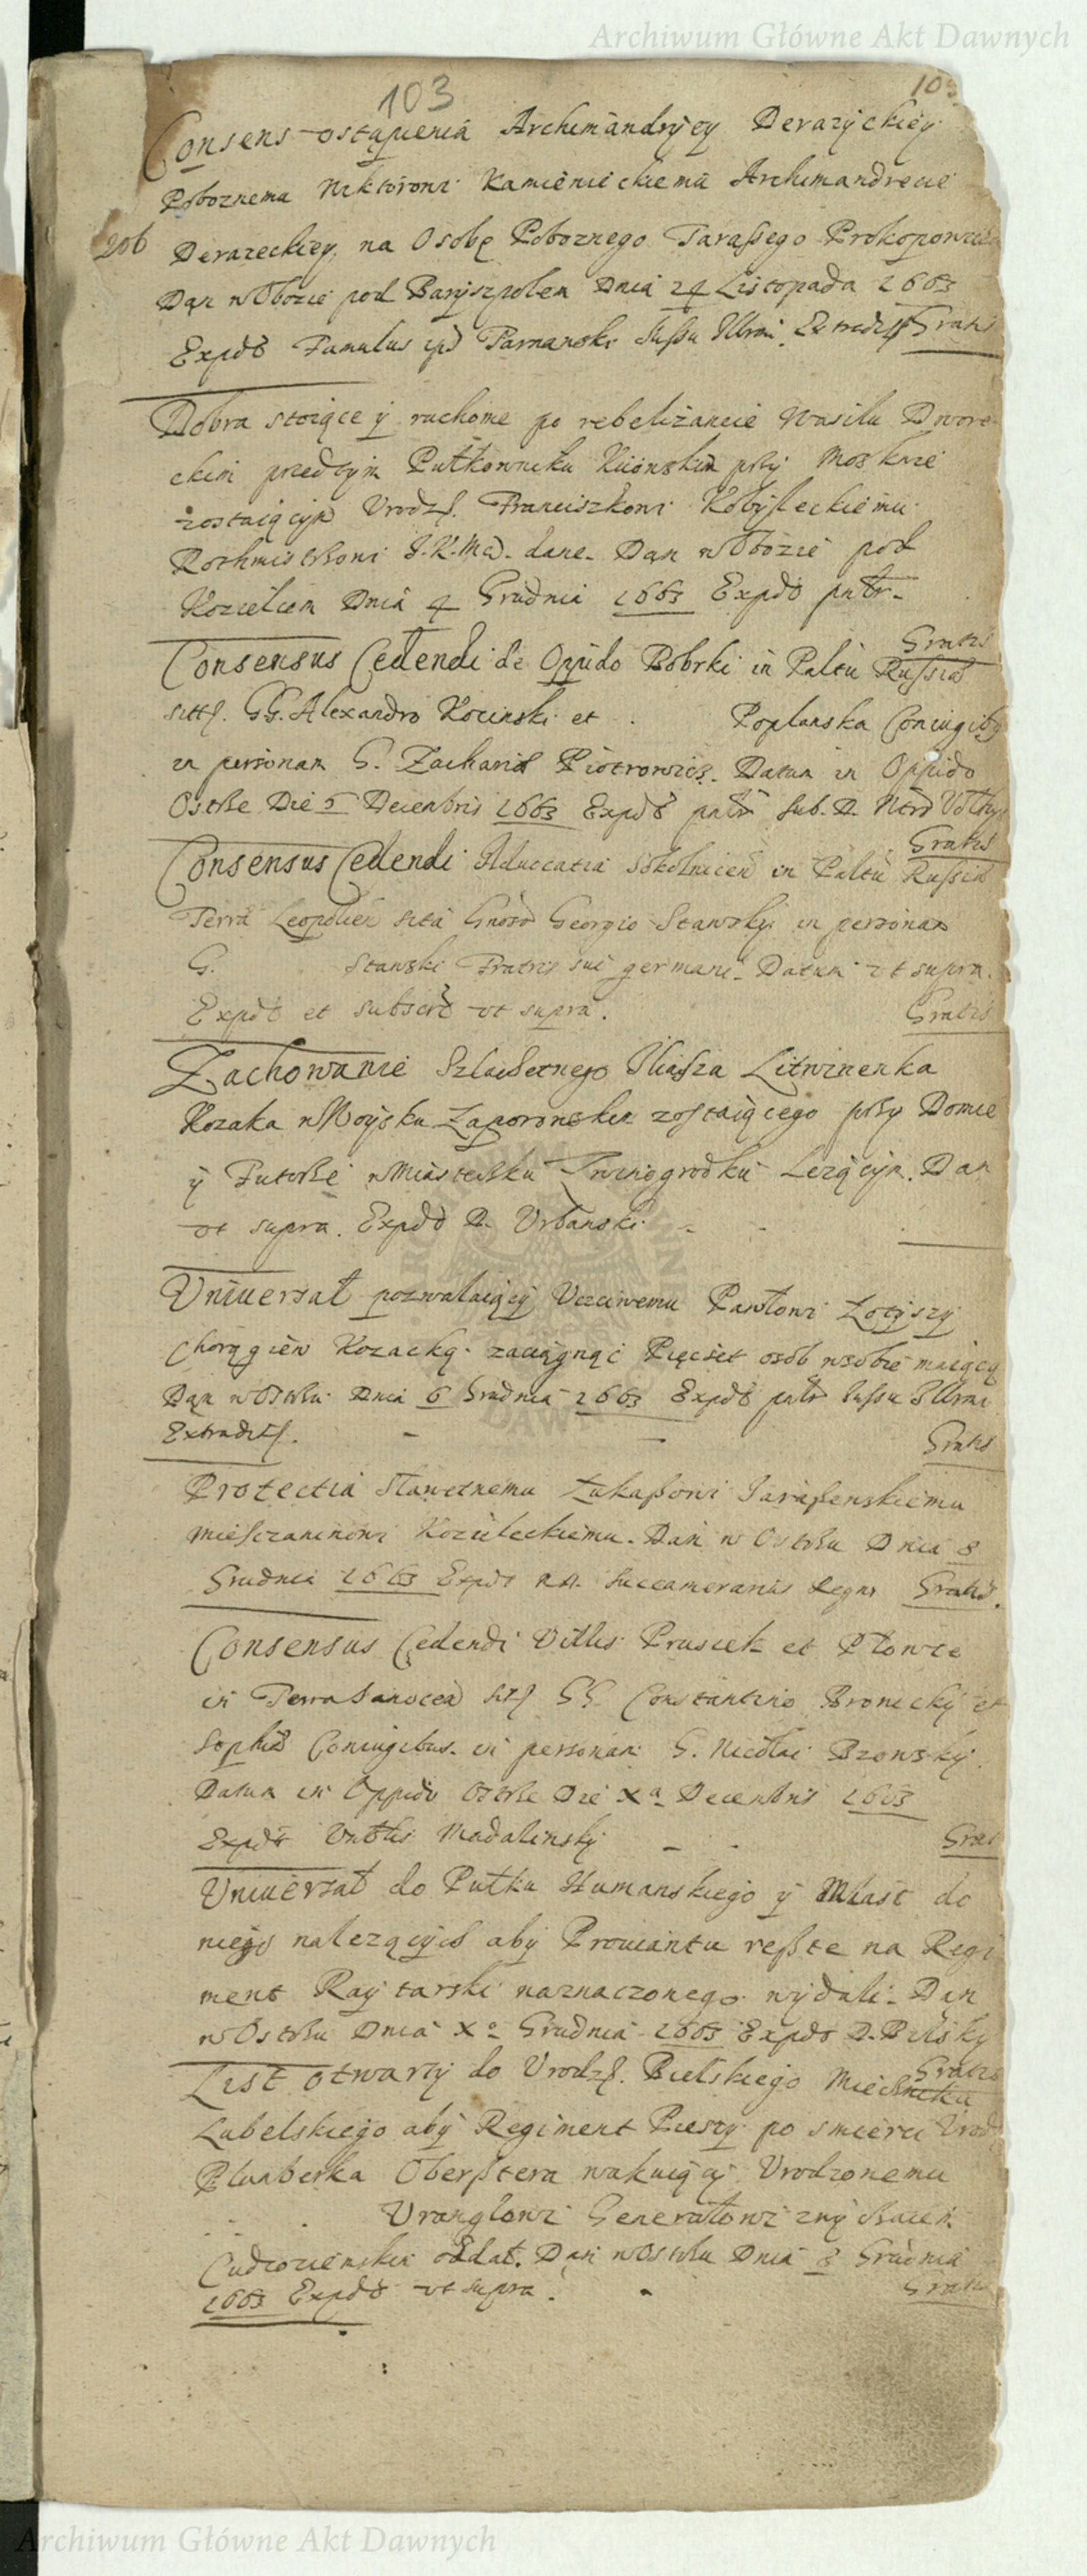 Archiwum Główne Akt Dawnych
103
103
Consens ostąpienia Archimandryey Derazyckiey
Poboznemu Niktoroni Kamienieckiemu Archimandrecie
206
Derazeckiey, na Osobę Poboznego Tarassego Prokopowicza
Dan w Obozie pod Baryszpolem Dnia 24 Listopada 1663
Expdt Famulus Jussu Illrmi Extradit Gratis
Dobra stoiące y ruchome po rebelizancie Wasilu Dwore-
ckim przedtym Pułkowniku Kiiowskim przy Moskwie
zostaiącym Vrodz. Franciszkowi Kobyłeckiemu
Rothmistrzowi J.K.Mci. dane. Dan w Obozie pod
Kozielcem Dnia 4 Grudnia 1663 Expdt
Gratis
Consensus Cedendi de Oppido Bobrki in Paltu Russia
sitt. GG. Alexandro Kocinski et . Poplanska Coniugibus
in personam G. Zacharia Piotrowicz. Datum in Oppido
Ostrze Die 5 Decembris 1663 Expdt Sub. D.
Gratis
Consensus Cedendi Aduocatia Sokolnicen in Paltu Russia
Terra Leopolien sita Gnoso Georgio Stawsky in personam
G. Stawski Fratris sui germani. Datum vt supra.
Expdt et subscr vt supra. Gratis
Zachowanie Szlachetnego Iliasza Litwinenka
Kozaka w Woysku Zaporowskim zostaiącego przy Domie
y Futorze w Miasteczku Lezącym. Dan
vt supra. Expdt D. Vrbanski.
Vniuersał pozwalaiący Vczciwemu Pawłowi Łotyszy
Chorągiew Kozacką zaciągnąć Pięcset osob w sobie maiący
Dan w Ostrzu Dnia 6 Grudnia 1663 Expdt Jussu Illrmi
Extradit. Gratis
Protectia Sławetnemu Łukaszowi Jaraszenskiemu
Miesczaninowi Kozieleckiemu. Dan w Ostrzu Dnia 8
Grudnia 1663 Expdt Succamerarius Regni Gratis.
Consensus Cedendi Villis Prusiek et Płonce
in Terra Sanocen sit GG Constantino Bronicky et
Sophia Coniugibus in personam G. Nicolai Bzowsky.
Datum in Oppido Ostrze Die Xa Decembris 1663
Expdt Madalinsky Grat
Vniuersał do Pułku Humanskiego y Miast do
niego nalezących aby Prowiantu resste na Regi
ment Raytarski naznaczonego wydali. Dan
w Ostrzu Dnia Xo Grudnia 1663 Expdt D. Bilsky
Gratis
List otwarty do Vrodz. Bielskiego Miecznika
Lubelskiego aby Regiment Pieszy po smierci Vrod
Plumberka Obersztera wakuiący Vrodzonemu
Vranglowi Generałowi
Cudzoziemskim oddał. Dan w Ostrzu Dnia 8 Grudnia
1663 Expdt vt supra. Gratis
Archiwum Główne Akt Dawnych